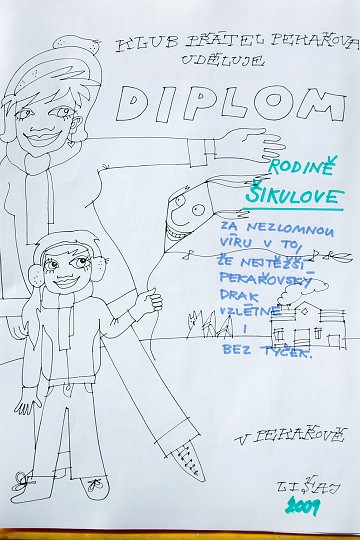 KLUB PŘÁTEL PEKAŘOVA
UDĚLUJE
DIPLOM
RODINĚ
ŠIKULOVE
ZA NEZLOMNOU
VÍRU V TO,
ŽE NEJTĚŽŠÍ
PEKAŘOVSKÝ
DRAK
VZLÉTNE
I
BEZ TYČEK.
V PEKAŘOVĚ
LIŠAJ
2009